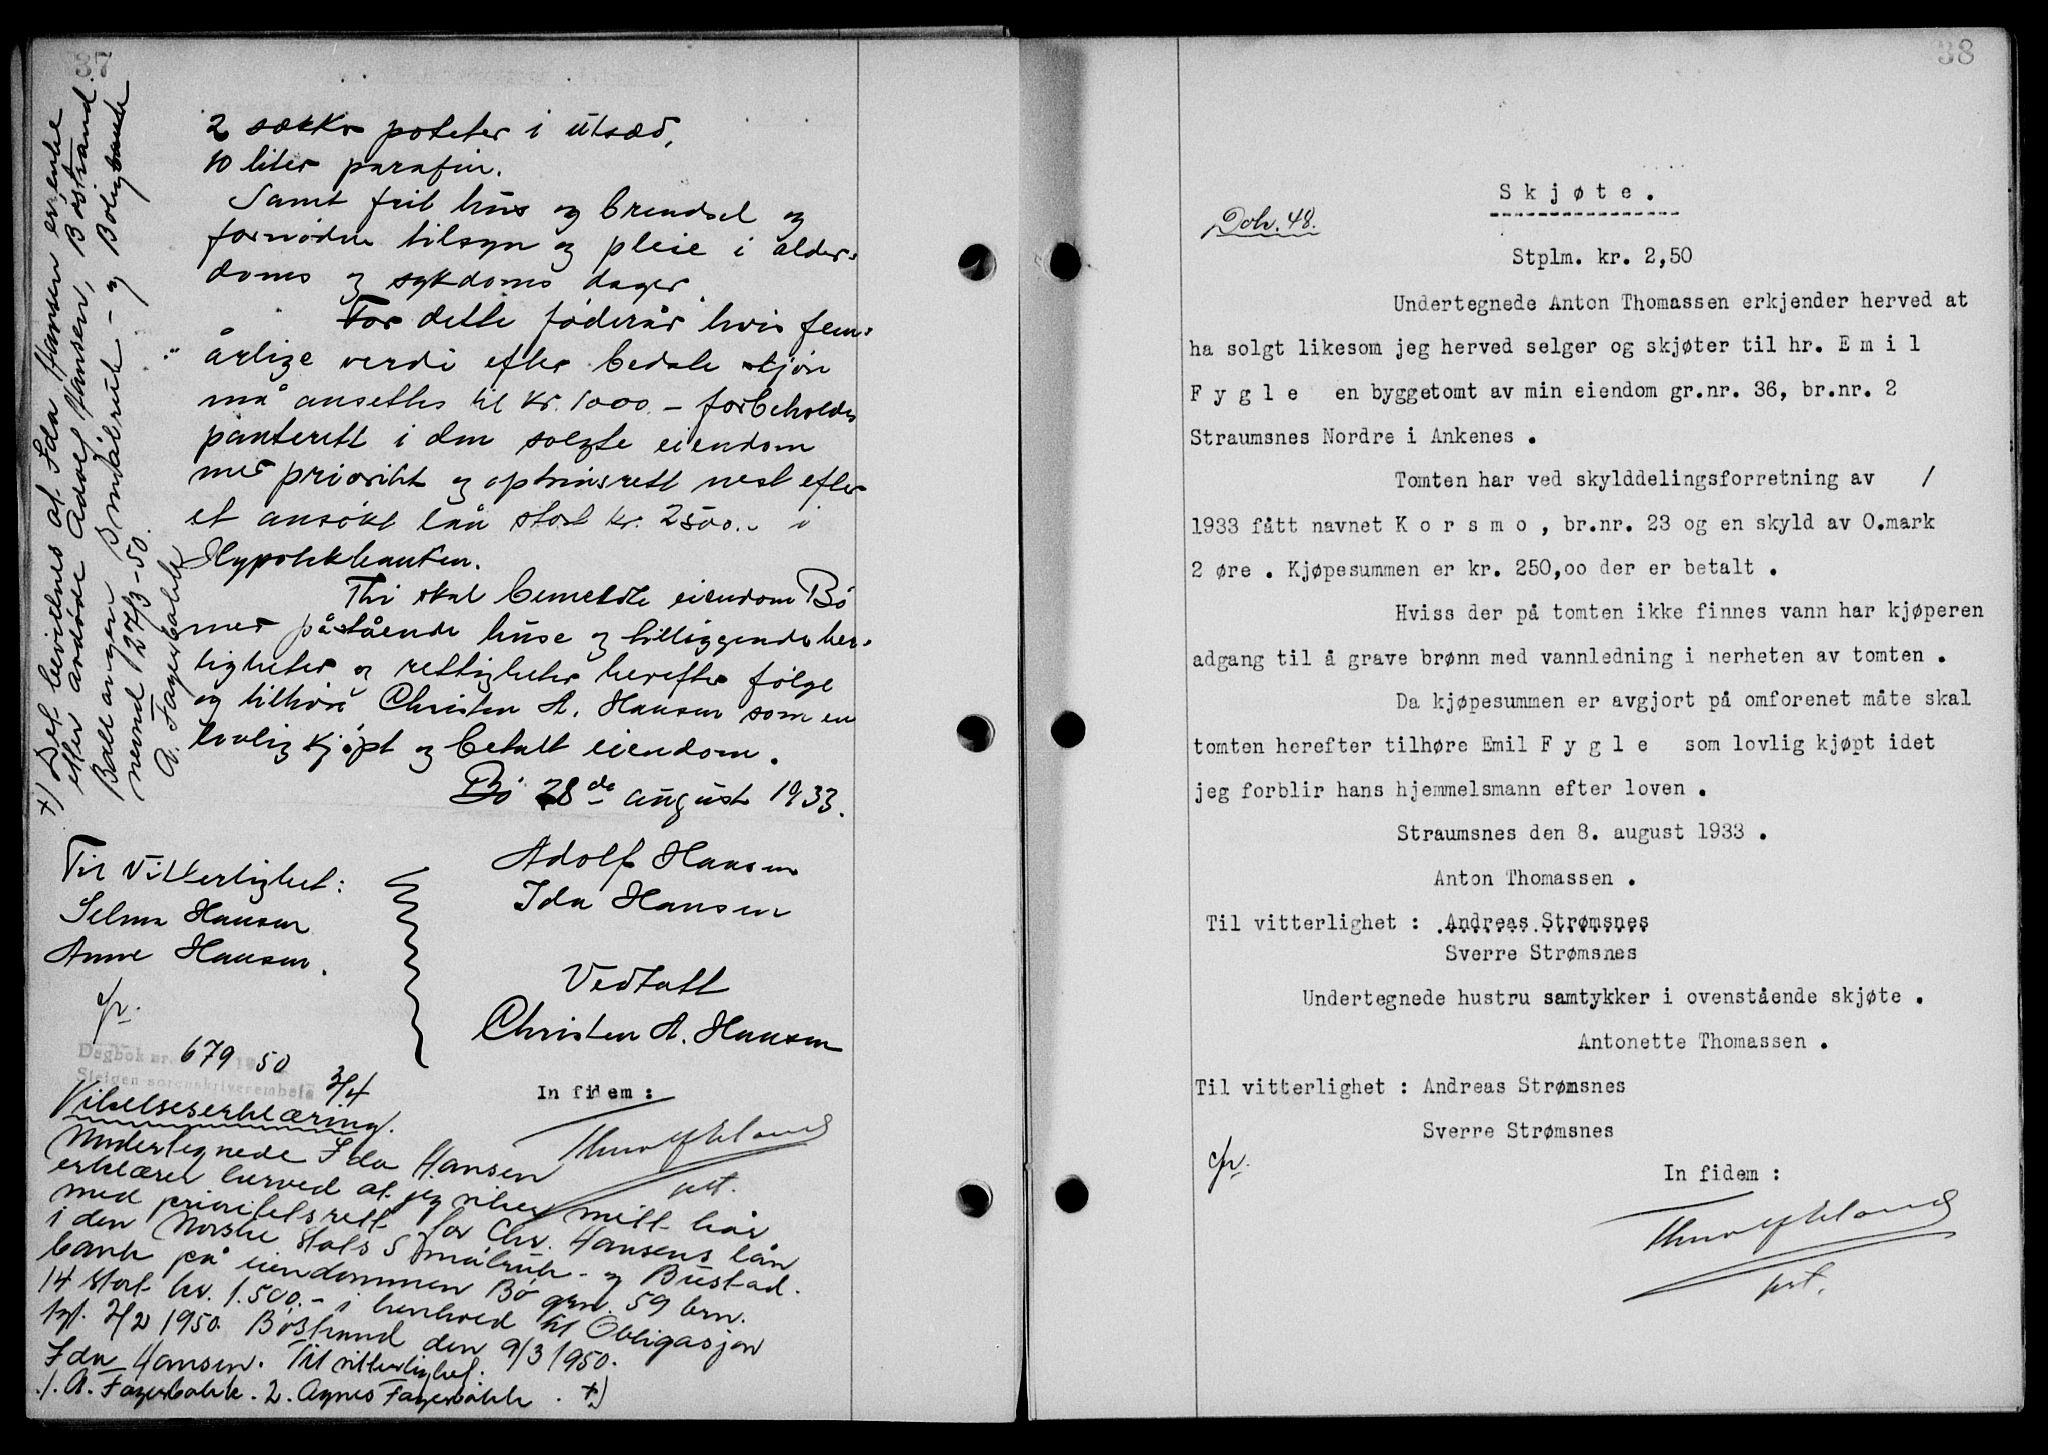 37
2 sække poteter i utsæd,
10 liter parafin.
Samt frit hus og brendsel og
fornødne tilsyn og pleie i alder-
doms og sykdoms dager.
For dette føderåd hvis fem-
årlige verdi efter bedste skjøn
må ansettes til kr. 1000.- forbeholdes
panterett i den solgte eiendom
med prioritet og optrinsrett nest efter
et ansøkt lån stort kr. 2500.- i
Hypotekbanken.
Thi skal bemeldte eiendom Bø
med påstående huse og tilliggende her-
ligheter og rettigheter herefter følge
og tilhøre Christen A. Hansen som en
lovlig kjøpt og betalt eiendom.
Bø 28de august 1933.
Adolf Hansen
Ida Hansen
Til Vitterlighet:
Selma Hansen
Anne Hansen.
Vedtatt
Christen A. Hansen
cfr.
In fidem :
Dagbok nr. 679 1950
Steigen sorenskriverembete 3/4
Vikelseserklæring.
Undertegnede Ida Hansen
erklærer herved at jeg viker mitt kår
med prioritetsrett for Chr. Hansens lån
i den Norske Stats Småbruk- og Bustad-
bank på eiendommen Bø grn. 59 brn.
14 stort kr. 1.500.- i henhold til Obligasjon
tgl. 2/2 1950. Bøstrand den 9/3 1950.
Ida Hansen. Til vitterlighet:
1. A. Fagerbakk. 2. Agnes Fagerbakk. +)
+) Det bevitnes at Ida Hansen er enke
etter avdøde Adolf Hansen, Bøstrand.
Ballangen Småbruk- og Boligbank
nevnd 27/3-50.
A. Fagerbakk
38
Skjøte.
Dok. 48.
Stplm. kr. 2,50
Undertegnede Anton Thomassen erkjender herved at
ha solgt likesom jeg herved selger og skjøter til hr. E m i l
F y g l e en byggetomt av min eiendom gr.nr. 36, br.nr. 2
Straumsnes Nordre i Ankenes .
Tomten har ved skylddelingsforretning av /
1933 fått navnet K o r s m o , br.nr. 23 og en skyld av 0.mark
2 øre . Kjøpesummen er kr. 250,oo der er betalt .
Hviss der på tomten ikke finnes vann har kjøperen
adgang til å grave brønn med vannledning i nerheten av tomten .
Da kjøpesummen er avgjort på omforenet måte skal
tomten herefter tilhøre Emil F y g l e som lovlig kjøpt idet
jeg forblir hans hjemmelsmann efter loven .
Straumsnes den 8. august 1933 .
Anton Thomassen .
Til vitterlighet : Andreas Strømsnes
Sverre Strømsnes
Undertegnede hustru samtykker i ovenstående skjøte .
Antonette Thomassen .
Til vitterlighet : Andreas Strømsnes
Sverre Strømsnes
cfr.
In fidem :